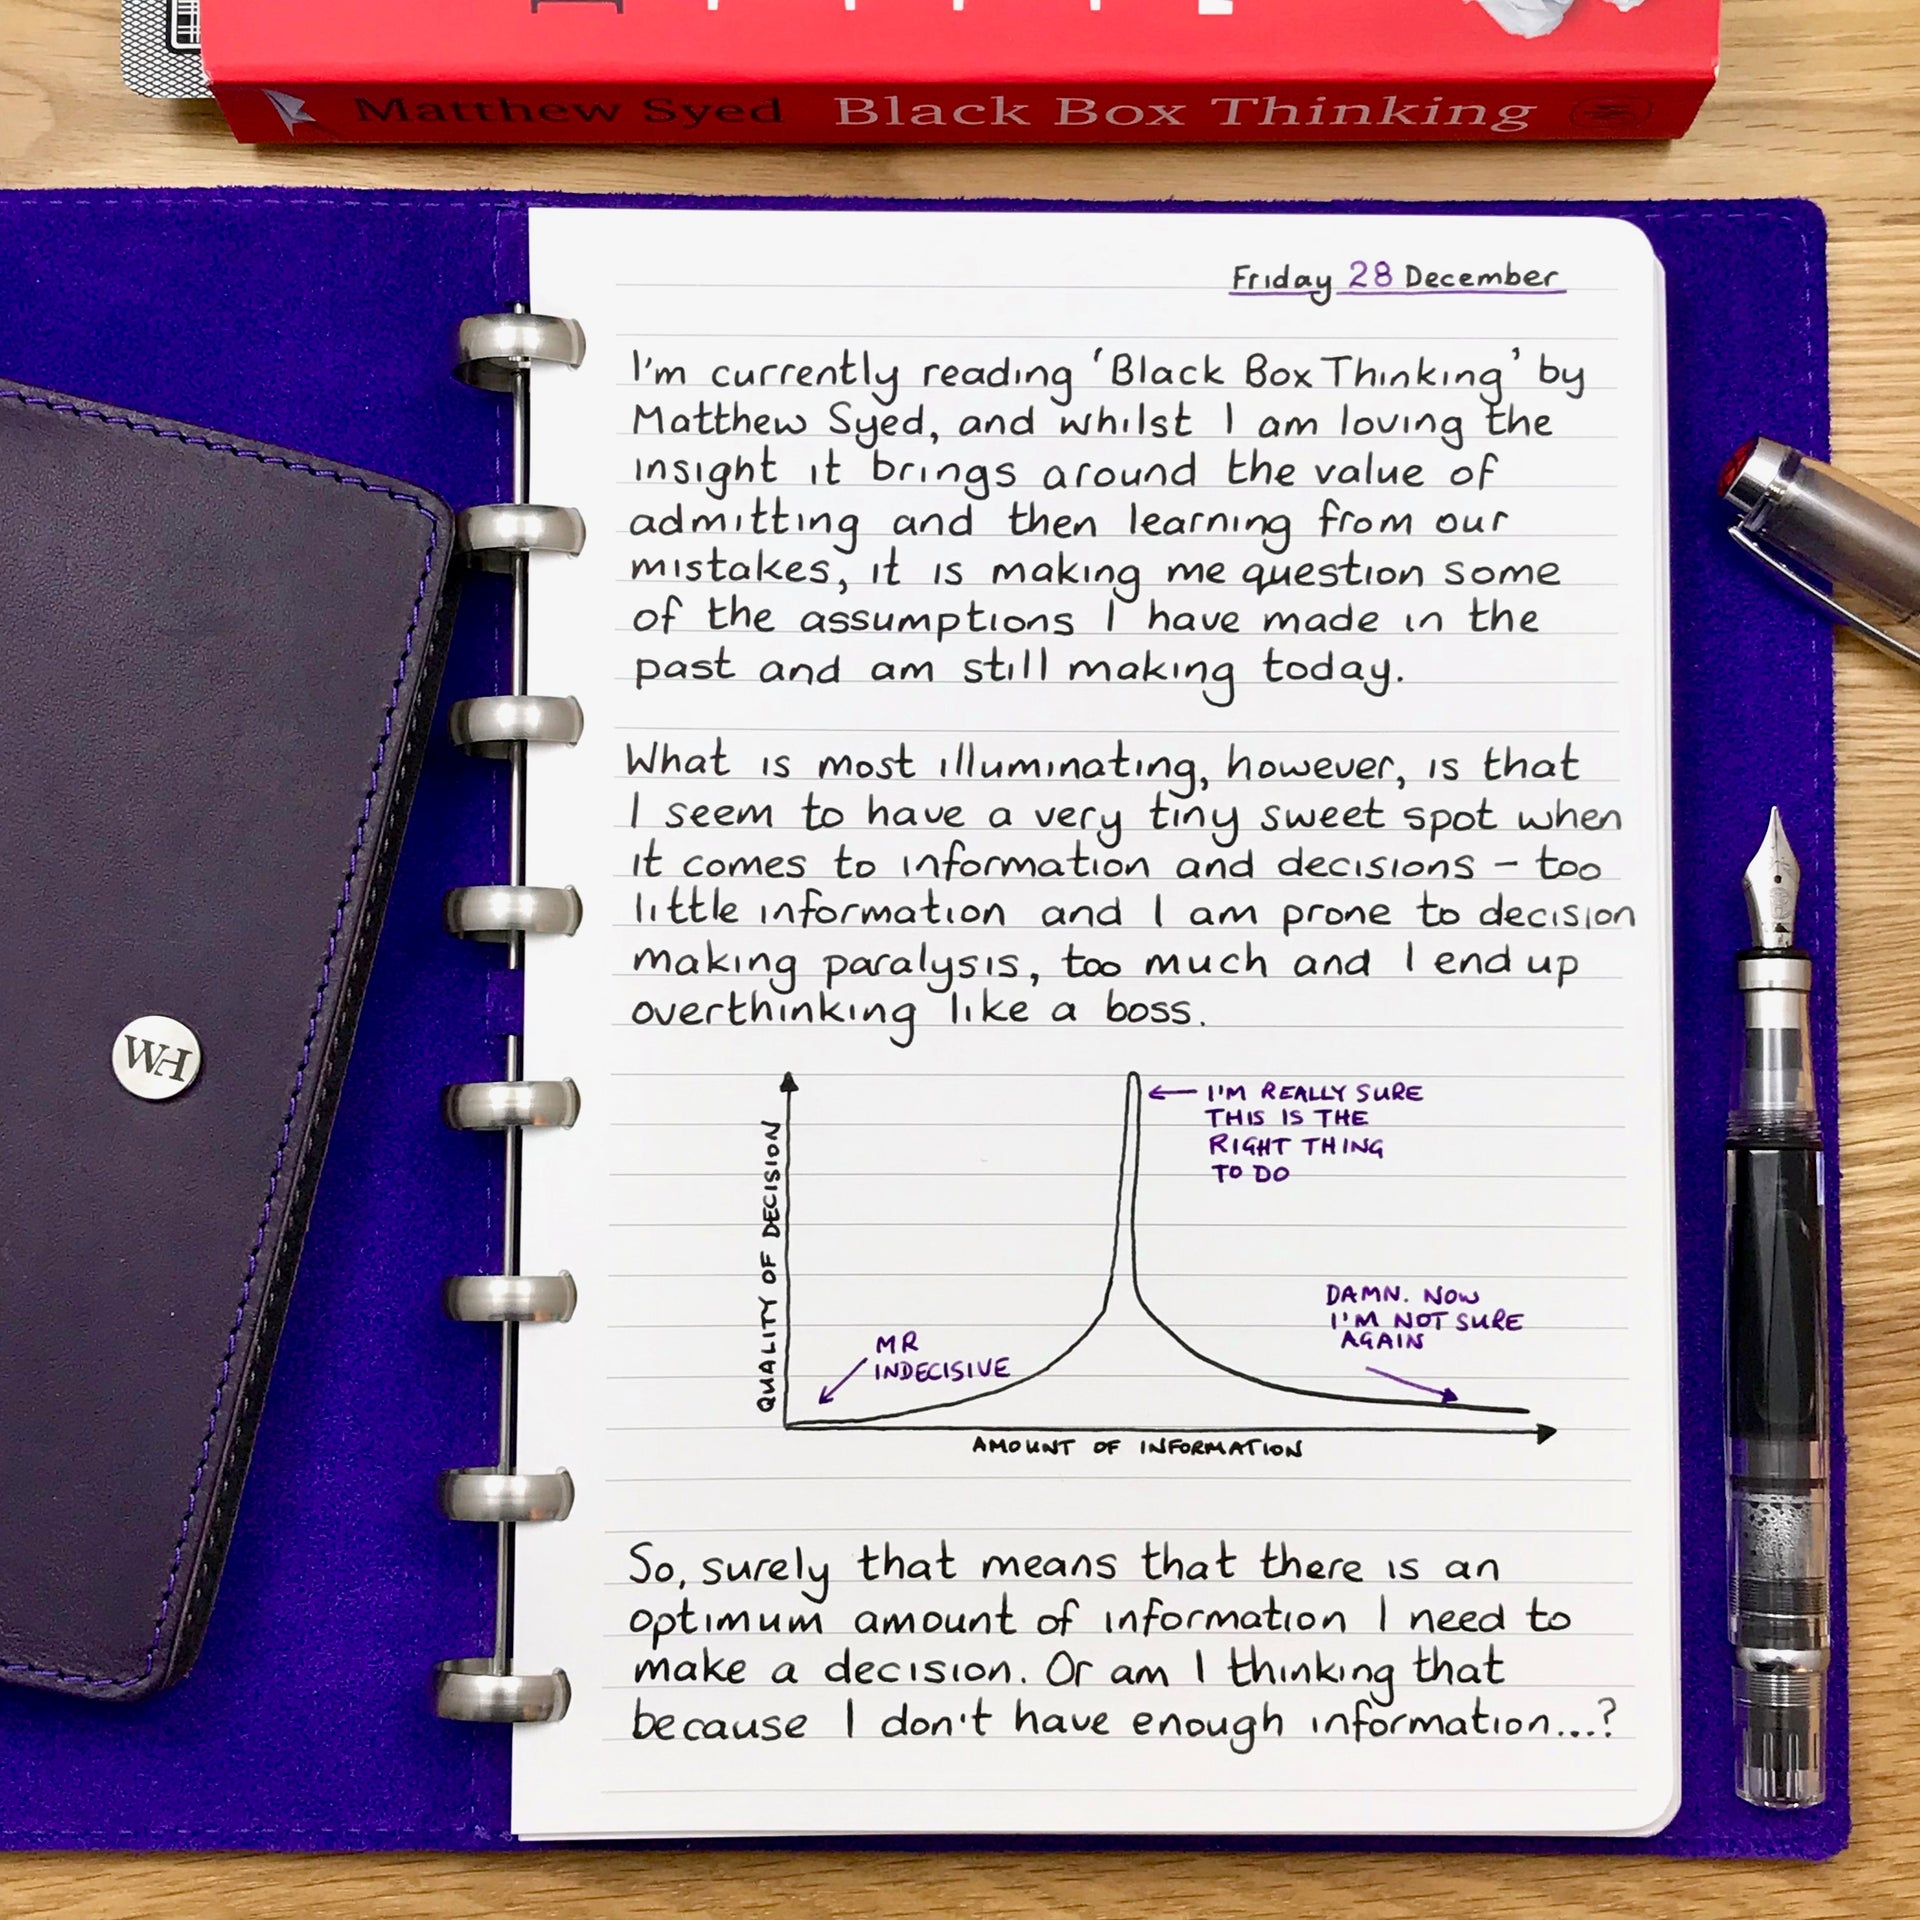 Matthew Syed Black Box Thinking
Friday 28 December
I'm currently reading 'Black Box Thinking' by
Matthew Syed, and whilst I am loving the
insight it brings around the value of
admitting and then learning from our
mistakes, it is making me question some
of the assumptions I have made in the
past and am still making today.
What is most illuminating, however, is that
I seem to have a very tiny sweet spot when
it comes to information and decisions – too
little information and I am prone to decision
making paralysis, too much and I end up
overthinking like a boss.
WH
QUALITY OF DECISION
I'M REALLY SURE
THIS IS THE
RIGHT THING
TO DO
MR
INDECISIVE
DAMN. NOW
I'M NOT SURE
AGAIN
AMOUNT OF INFORMATION
So, surely that means that there is an
optimum amount of information I need to
make a decision. Or am I thinking that
because I don't have enough information...?